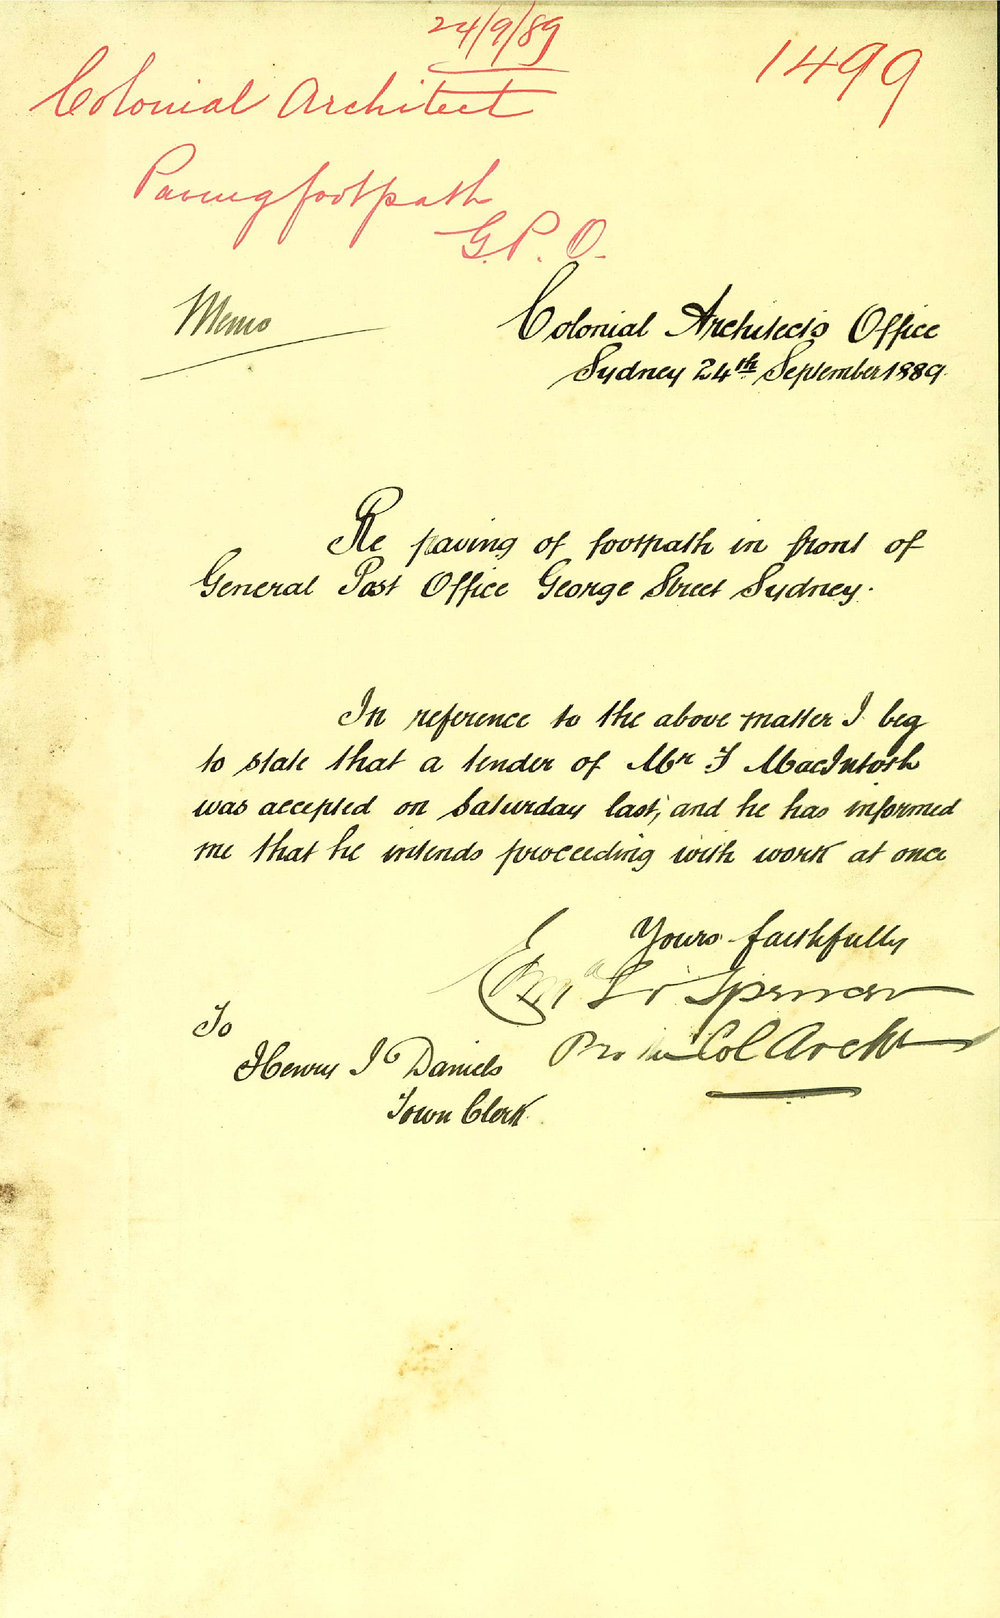 24/9/89
1499
Colonial Architect
Paving footpath
G.P.O.
Memo
Colonial Architects Office
Sydney 24th September 1889
Re paving of footpath in front of
General Post Office George Street Sydney.
In reference to the above matter I beg
to state that a tender of Mr F MacIntosh
was accepted on Saturday last, and he has informed
me that he intends proceeding with work at once
Yours faithfully
Spencer
To
Col Archt
Henry J Daniels
Town Clerk